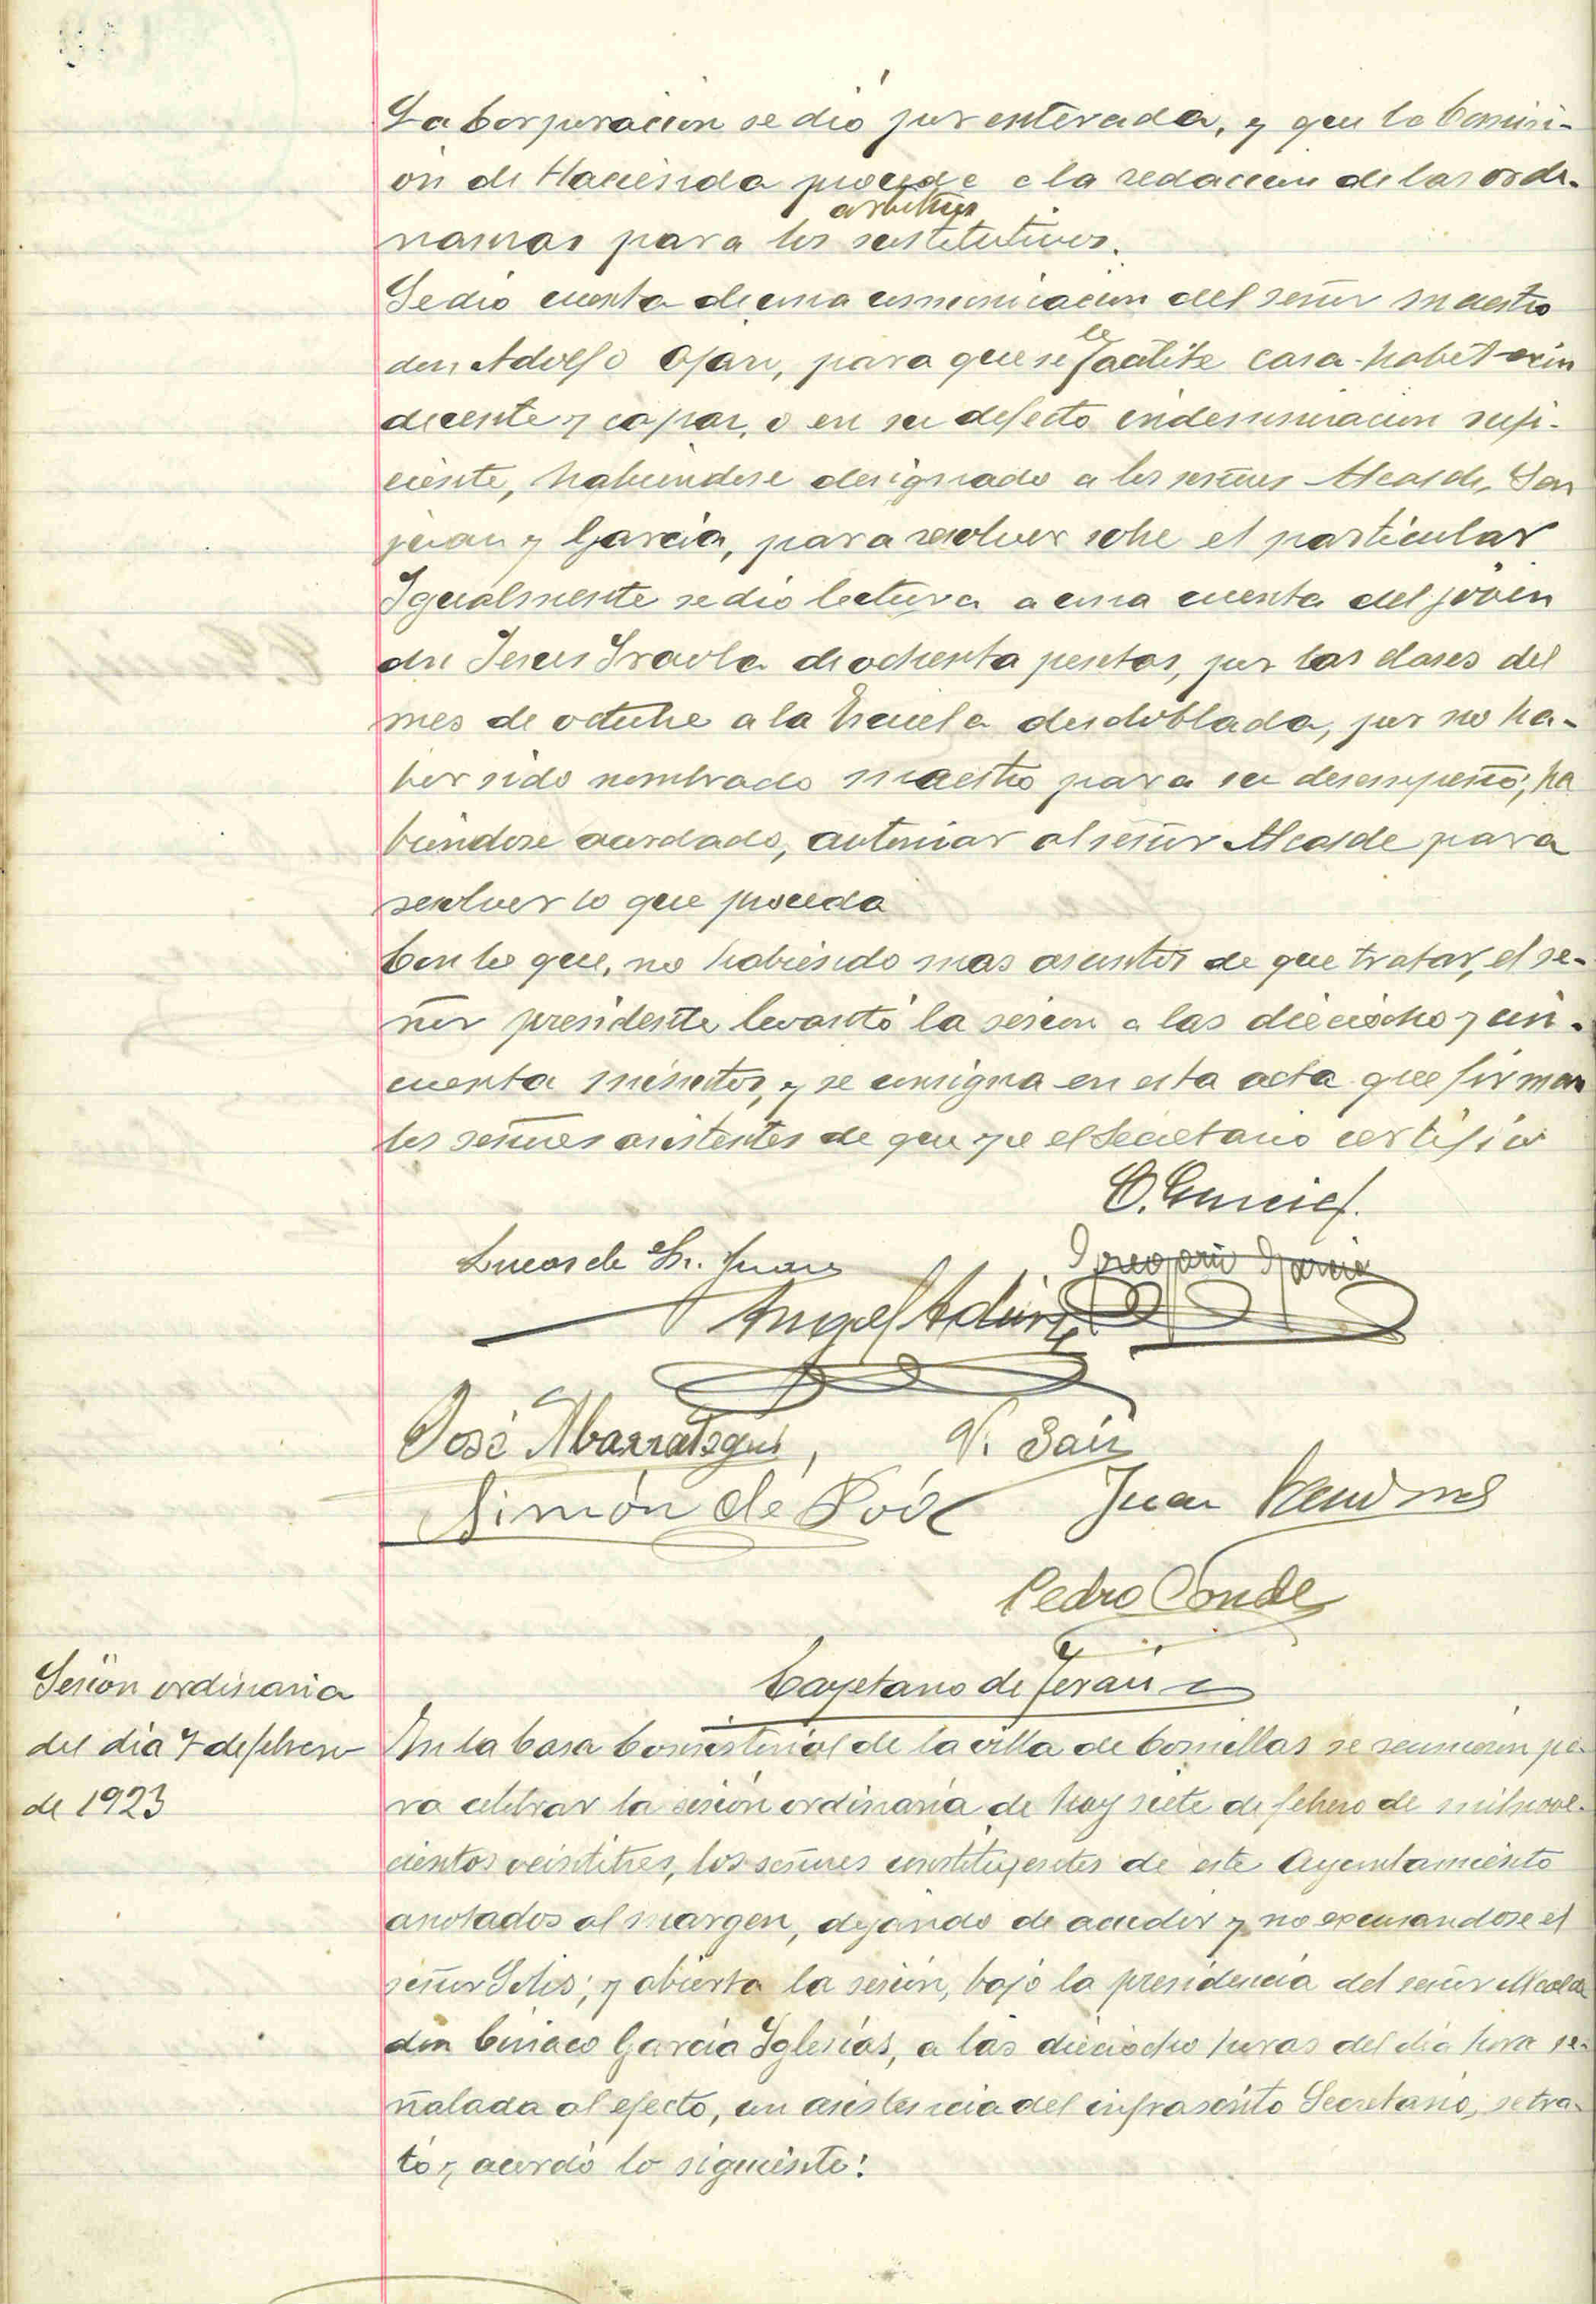 La Corporacion se dió por enterada, y que la Comisi-
on de Hacienda procede a la redaccion de las orde-
arbitrios
nanzas para los sustitutivos.
Se dio cuenta de una comunicacion del señor maestro
don Adolfo para que se le facilite casa-habitacion
decente y capaz, o en su defecto indemnizacion sufi-
ciente, habiendose designado a los señores Alcalde, San
juan y Garcia, para resolver sobre el particular
Igualmente se dio lectura a una cuenta del joven
don Jesus Iraola de ochenta pesetas, por las clases del
mes de octubre a la Escuela desdoblada, por no ha-
ber sido nombrado maestro para su desempeño; ha
biendose acordado, autorizar al señor Alcalde para
resolver lo que proceda
Con lo que, no habiendo mas asuntos de que tratar, el se-
ñor presidente levantó la sesion a las dieciocho y cin-
cuenta minutos, y se consigna en esta acta que firman
los señores asistentes de que yo el Secretario certifico
C. Garcia
Lucas de Sn. Juan Gregorio Garcia
Angel Adan
José Abarrategui, V. Saiz
Simón de Poo Juan
Pedro Conde
Cayetano de Terán
Sesion ordinaria
del dia 7 de febrero
de 1923
En la Casa Consistorial de la villa de Comillas se reunieron pa
ra celebrar la sesion ordinaria de hoy siete de febrero de mil nove-
cientos veintitres, los señores constituyentes de este Ayuntamiento
anotados al margen, dejando de acudir y no excusandose el
señor Solis; y abierta la sesion, bajo la presidencia del señor Alcalde
don Ciriaco Garcia Iglesias, a las dieciocho horas del dia hora se-
ñalada al efecto, con asistencia del infrascrito Secretario, se tra-
tó y acordó lo siguiente: